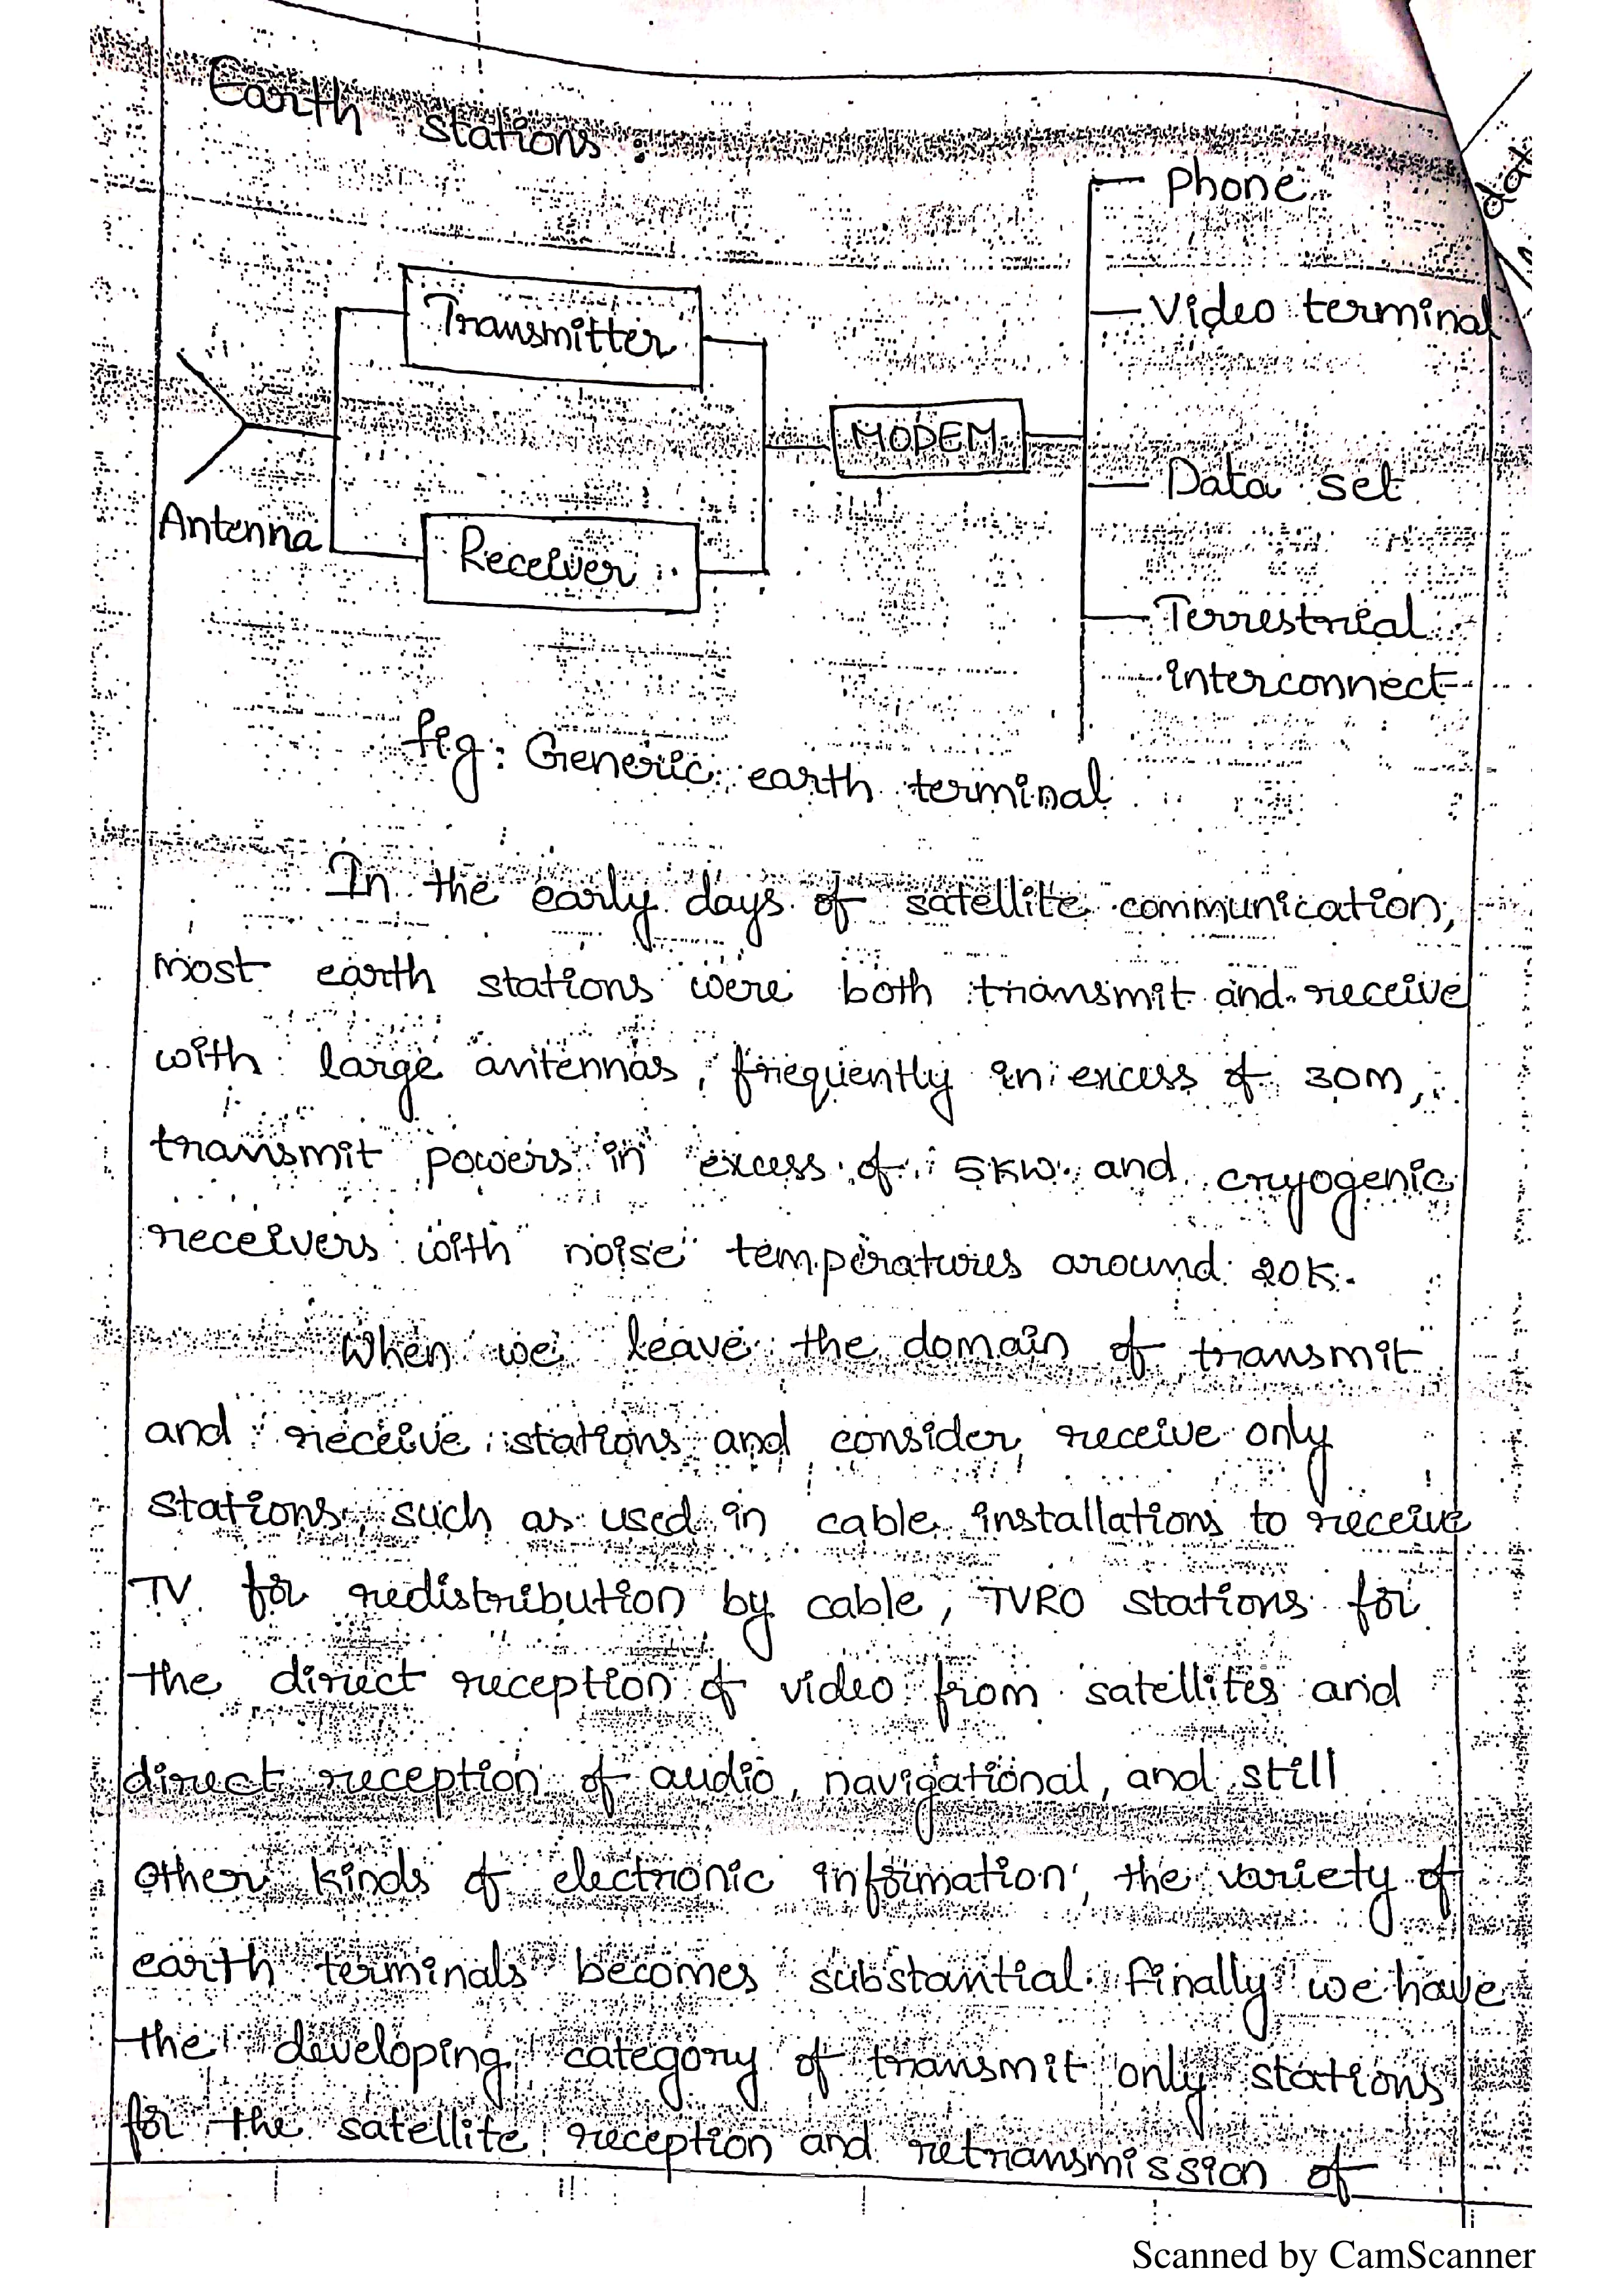 Earth stations :
Phone
Transmitter
Video terminal
MODEM
Data set
Antenna
Receiver
Terrestrial
interconnect
fig: Generic earth terminal
In the early days of satellite communication,
most earth stations were both transmit and receive
with large antennas, frequently in excess of 30m,
transmit powers in excess of 5KW and cryogenic
receivers with noise temperatures around 20K.
When we leave the domain of transmit
and receive stations and consider receive only
stations, such as used in cable installations to receive
TV for redistribution by cable, TVRO stations for
the direct reception of video from satellites and
direct reception of audio, navigational, and still
other kinds of electronic information, the variety of
earth terminals becomes substantial. Finally we have
the developing category of transmit only stations
for the satellite reception and retransmission of
Scanned by CamScanner